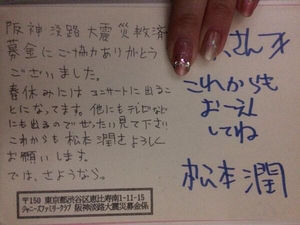 阪神淡路大震災救済
募金にご協力ありがとう
ございました。
春休みにはコンサートに出るこ
とになってます。他にもテレビなど
にも出るのでぜったい見て下さい
これからも松本潤をよろしく
お願いします。
では、さようなら。
〒150 東京都渋谷区恵比寿南1-11-15
ジャニーズファミリークラブ 阪神淡路大震災募金係
さんへ
これからも
おーえん
してね
松本潤